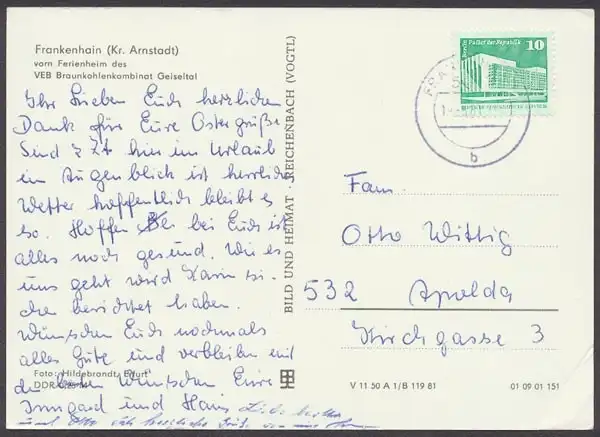 Frankenhain (Kr. Arnstadt)
vom Ferienheim des
VEB Braunkohlenkombinat Geiseltal
Ihr Lieben Euch herzlichen
Dank für Eure Ostergrüße
Sind z. Zt. hier im Urlaub
im Augenblick ist herrliches
Wetter hoffentlich bleibt es
so. Hoffen bei Euch ist
alles noch gesund. Wie es
uns geht wird Karin si-
cher berichtet haben.
Wünschen Euch nochmals
alles Gute und verbleiben mit
den Wünschen Eure
Irmgard und Hans
und Otto
Foto: Hildebrandt, Erfurt
DDR
BILD UND HEIMAT · REICHENBACH (VOGTL)
Berlin
Palast der Republik
10
b
Fam.
Otto Wittig
532 Apolda
Kirchgasse 3
V 11.50 A 1/B 119 81
01 09 01 151